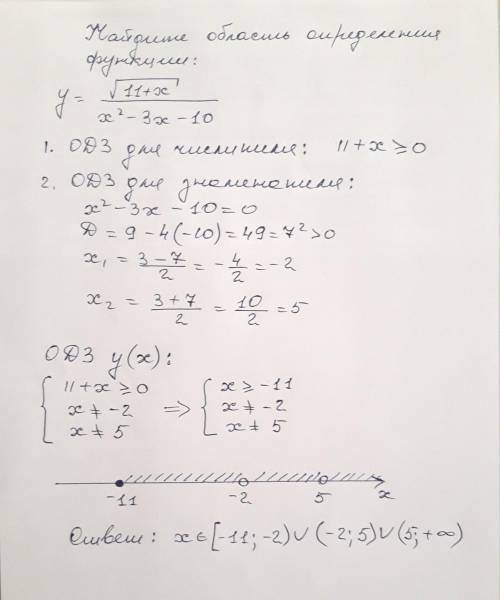 Найдите область определения
функции:
y = √(11+x) / (x² - 3x - 10)
1. ОДЗ для числителя: 11+x ≥ 0
2. ОДЗ для знаменателя:
x² - 3x - 10 = 0
Д = 9 - 4(-10) = 49 = 7² > 0
x₁ = (3-7)/2 = -4/2 = -2
x₂ = (3+7)/2 = 10/2 = 5
ОДЗ y(x):
{ 11+x ≥ 0 ⇒ { x ≥ -11
x ≠ -2 x ≠ -2
x ≠ 5 x ≠ 5
-11 -2 5 x
Ответ: x ∈ [-11; -2) ∪ (-2; 5) ∪ (5; +∞)